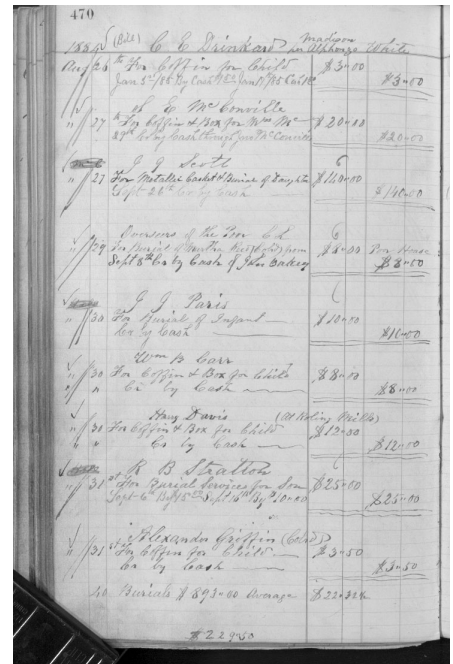 470
1884 (Bill) C E Drinkard per Alphonzo White Madison
Aug 26th For Coffin for Child $3.00
Jan 5th/85 By Cash $3.00
S. E. McConville
" 27 For Coffin & Box for Mrs Mc $20.00
29th Cr by Cash through Jno McConville $20.00
J J Scott
" 27 For Metallic Casket & Burial of Daughter $140.00
Sept 26th Cr by Cash $140.00
Overseers of the Poor C L
" 29 For Burial of Martha from Poor House $8.00
Sept 8th Cr by Cash of John Bakery $8.00
J J Paris
" 30 For Burial of Infant $10.00
Cr by Cash $10.00
Wm B Carr
" 30 For Coffin & Box for Child $8.00
" " Cr by Cash $8.00
Davis (At Roling Mills)
" 30 For Coffin & Box for Child $12.00
" " Cr by Cash $12.00
R B Stratton
" 31st For Burial Services for Son $25.00
Sept 6th By $15.00 Sept By $10.00 $25.00
Alexander Griffin (Cold)
" 31st For Coffin for Child $3.50
Cr by Cash $3.50
40 Burials $893.00 Average $22.32½
$229.50